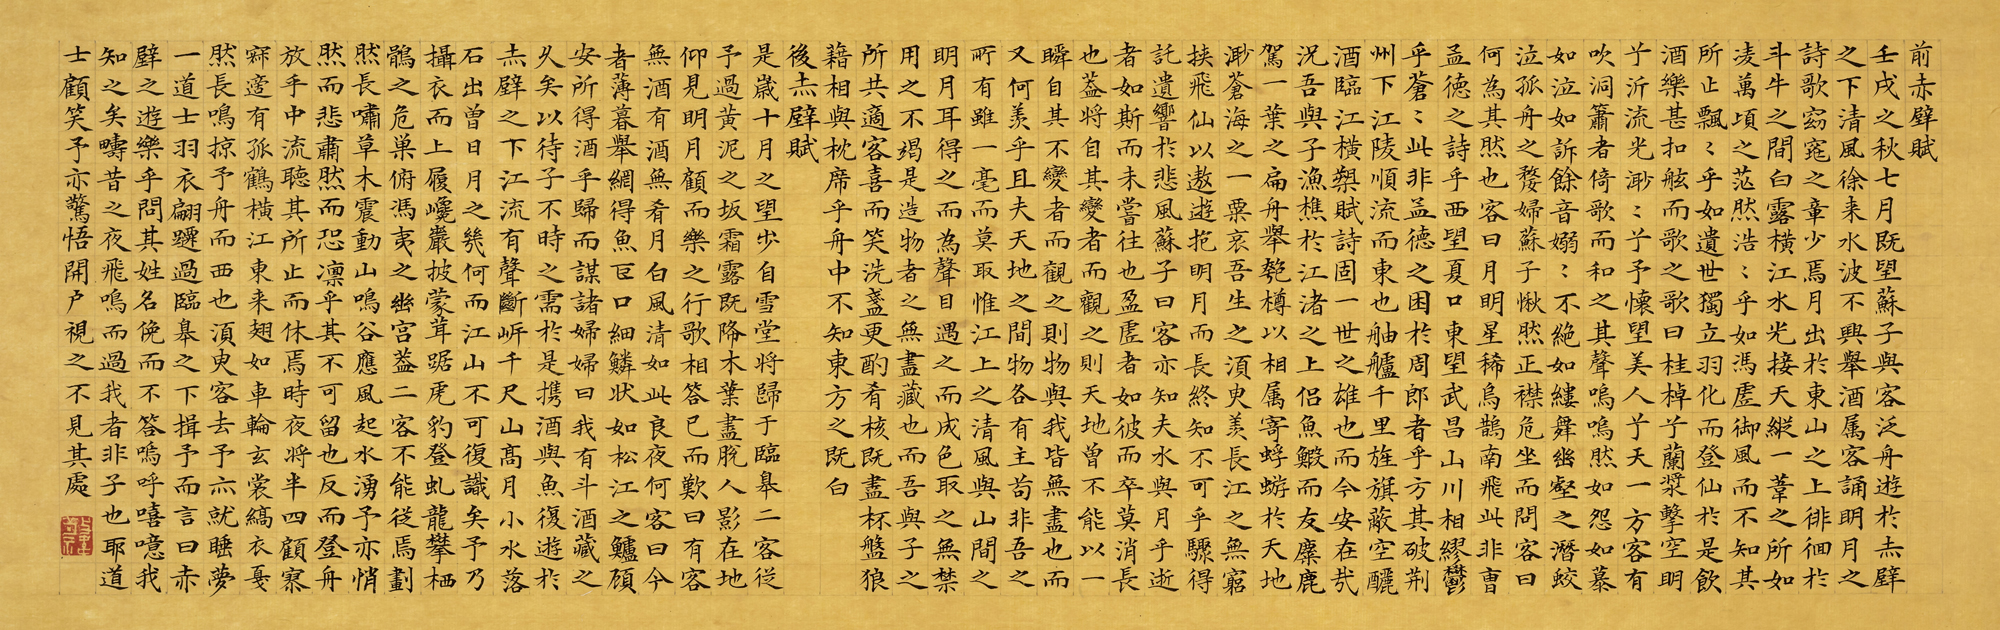 前赤壁賦
壬戌之秋七月既望蘇子與客泛舟遊於赤壁
之下清風徐来水波不興舉酒属客誦明月之
詩歌窈窕之章少焉月出於東山之上徘徊於
斗牛之間白露橫江水光接天縱一葦之所如
凌萬頃之茫然浩〻乎如馮虛御風而不知其
所止飄〻乎如遺世獨立羽化而登仙於是飲
酒樂甚扣舷而歌之歌曰桂棹兮蘭漿擊空明
兮泝流光渺〻兮予懷望美人兮天一方客有
吹洞簫者倚歌而和之其聲嗚嗚然如怨如慕
如泣如訴餘音嫋〻不絕如縷舞幽壑之潛蛟
泣孤舟之嫠婦蘇子愀然正襟危坐而問客曰
何為其然也客曰月明星稀烏鵲南飛此非曹
孟德之詩乎西望夏口東望武昌山川相繆鬱
乎蒼〻此非孟德之困於周郎者乎方其破荆
州下江陵順流而東也舳艫千里旌旗蔽空釃
酒臨江橫槊賦詩固一世之雄也而今安在哉
況吾與子漁樵於江渚之上侣魚鰕而友麋鹿
駕一葉之扁舟舉匏樽以相属寄蜉蝣於天地
渺蒼海之一粟哀吾生之須臾羨長江之無窮
挟飛仙以遨遊抱明月而長終知不可乎驟得
託遺響於悲風蘇子曰客亦知夫水與月乎逝
者如斯而未嘗往也盈虛者如彼而卒莫消長
也蓋將自其變者而觀之則天地曾不能以一
瞬自其不變者而觀之則物與我皆無盡也而
又何羨乎且夫天地之間物各有主苟非吾之
所有雖一毫而莫取惟江上之清風與山間之
明月耳得之而為聲目遇之而成色取之無禁
用之不竭是造物者之無盡藏也而吾與子之
所共適客喜而笑洗盞更酌肴核既盡杯盤狼
藉相與枕席乎舟中不知東方之既白
後赤壁賦
是歲十月之望步自雪堂將歸于臨皋二客從
予過黃泥之坂霜露既降木葉盡脫人影在地
仰見明月顧而樂之行歌相答已而歎曰有客
無酒有酒無肴月白風清如此良夜何客曰今
者薄暮舉網得魚巨口細鱗狀如松江之鱸顧
安所得酒乎歸而謀諸婦婦曰我有斗酒藏之
久矣以待子不時之需於是携酒與魚復遊於
赤壁之下江流有聲斷岸千尺山高月小水落
石出曾日月之幾何而江山不可復識矣予乃
攝衣而上履巉巖披蒙茸踞虎豹登虬龍攀栖
鶻之危巢俯馮夷之幽宮蓋二客不能從焉劃
然長嘯草木震動山鳴谷應風起水湧予亦悄
然而悲肅然而恐凛乎其不可留也反而登舟
放手中流聽其所止而休焉時夜將半四顧寂
寥適有孤鶴橫江東来翅如車輪玄裳縞衣戛
然長鳴掠予舟而西也須臾客去予亦就睡夢
一道士羽衣翩躚過臨皋之下揖予而言曰赤
壁之遊樂乎問其姓名俛而不答嗚呼嘻噫我
知之矣疇昔之夜飛鳴而過我者非子也耶道
士顧笑予亦驚悟開户視之不見其處